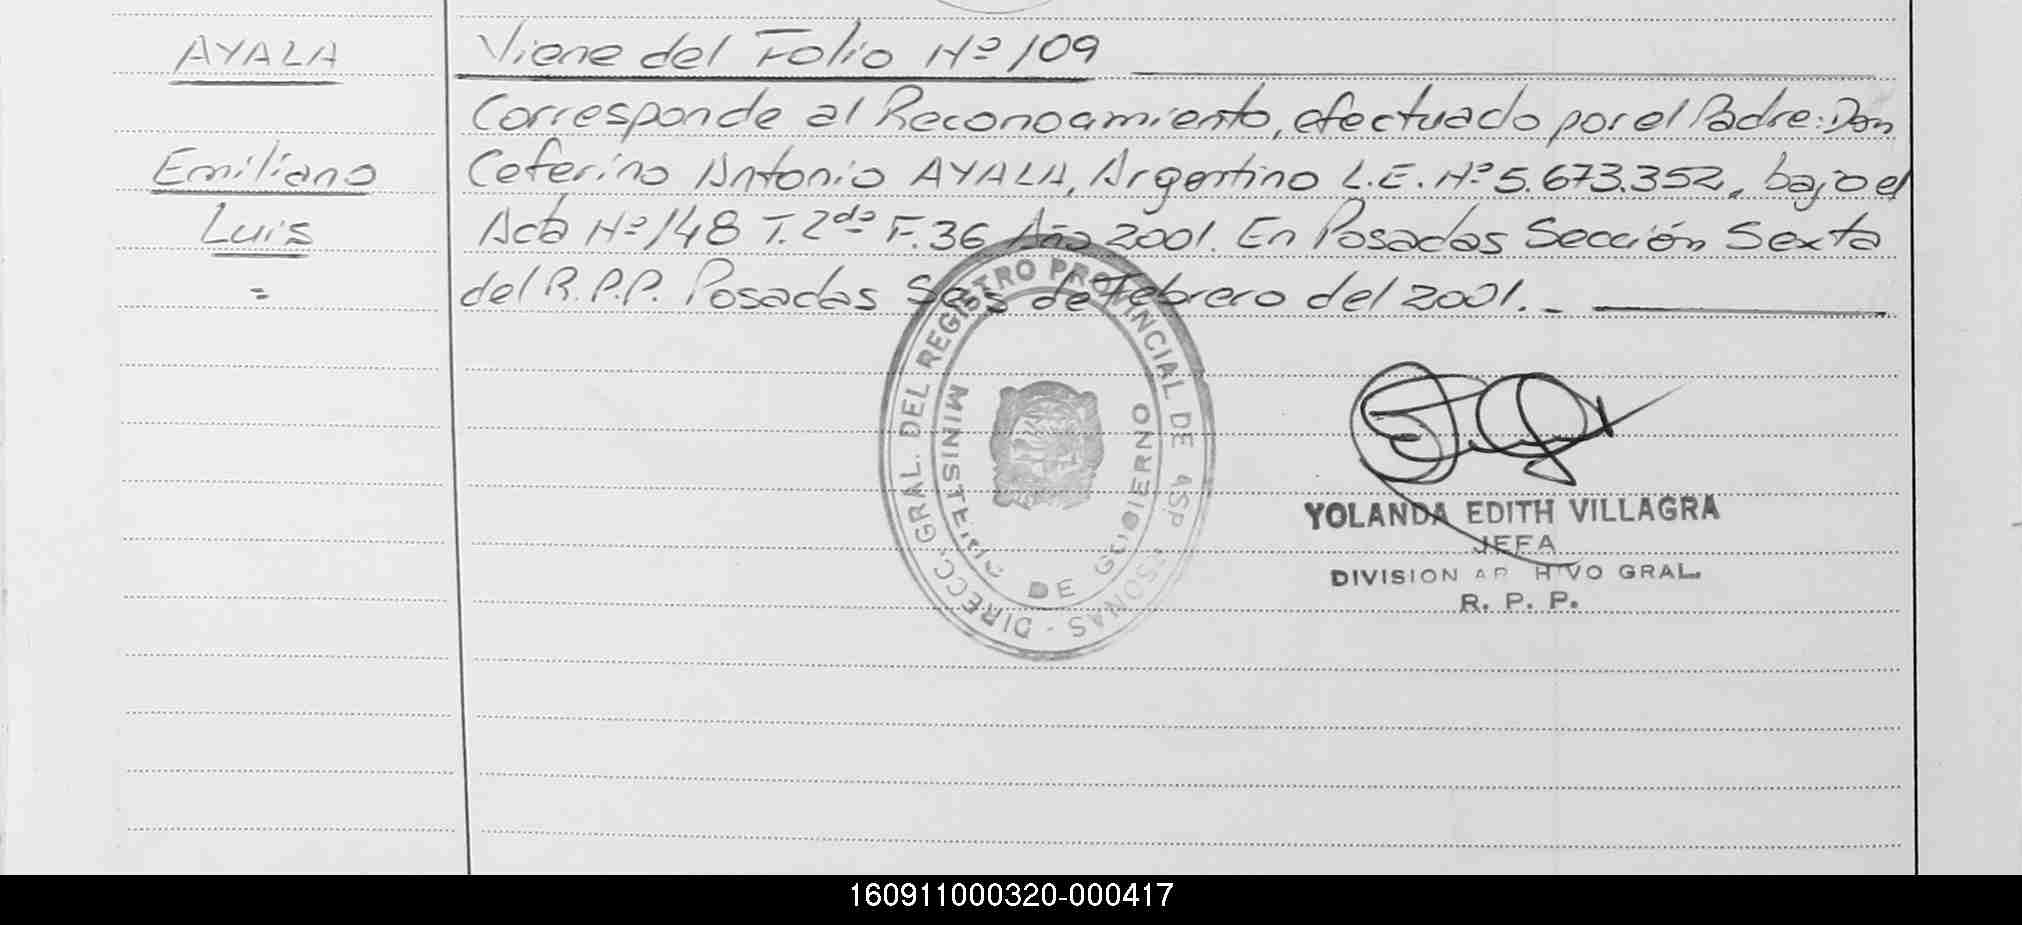 AYALA
Emiliano
Luis
=
Viene del Folio Nº 109
Corresponde al Reconocimiento, efectuado por el Padre: Don
Ceferino Antonio AYALA, Argentino L.E. Nº 5.673.352, bajo el
Acta Nº 148 T. 2do F. 36 Año 2001. En Posadas Sección Sexta
del R.P.P. Posadas Seis de Febrero del 2001. -
DIRECC. GRAL. DEL REGISTRO PROVINCIAL DE
MINISTERIO
DE GOBIERNO
YOLANDA EDITH VILLAGRA
JEFA
DIVISION AR H VO GRAL.
R. P. P.
160911000320-000417